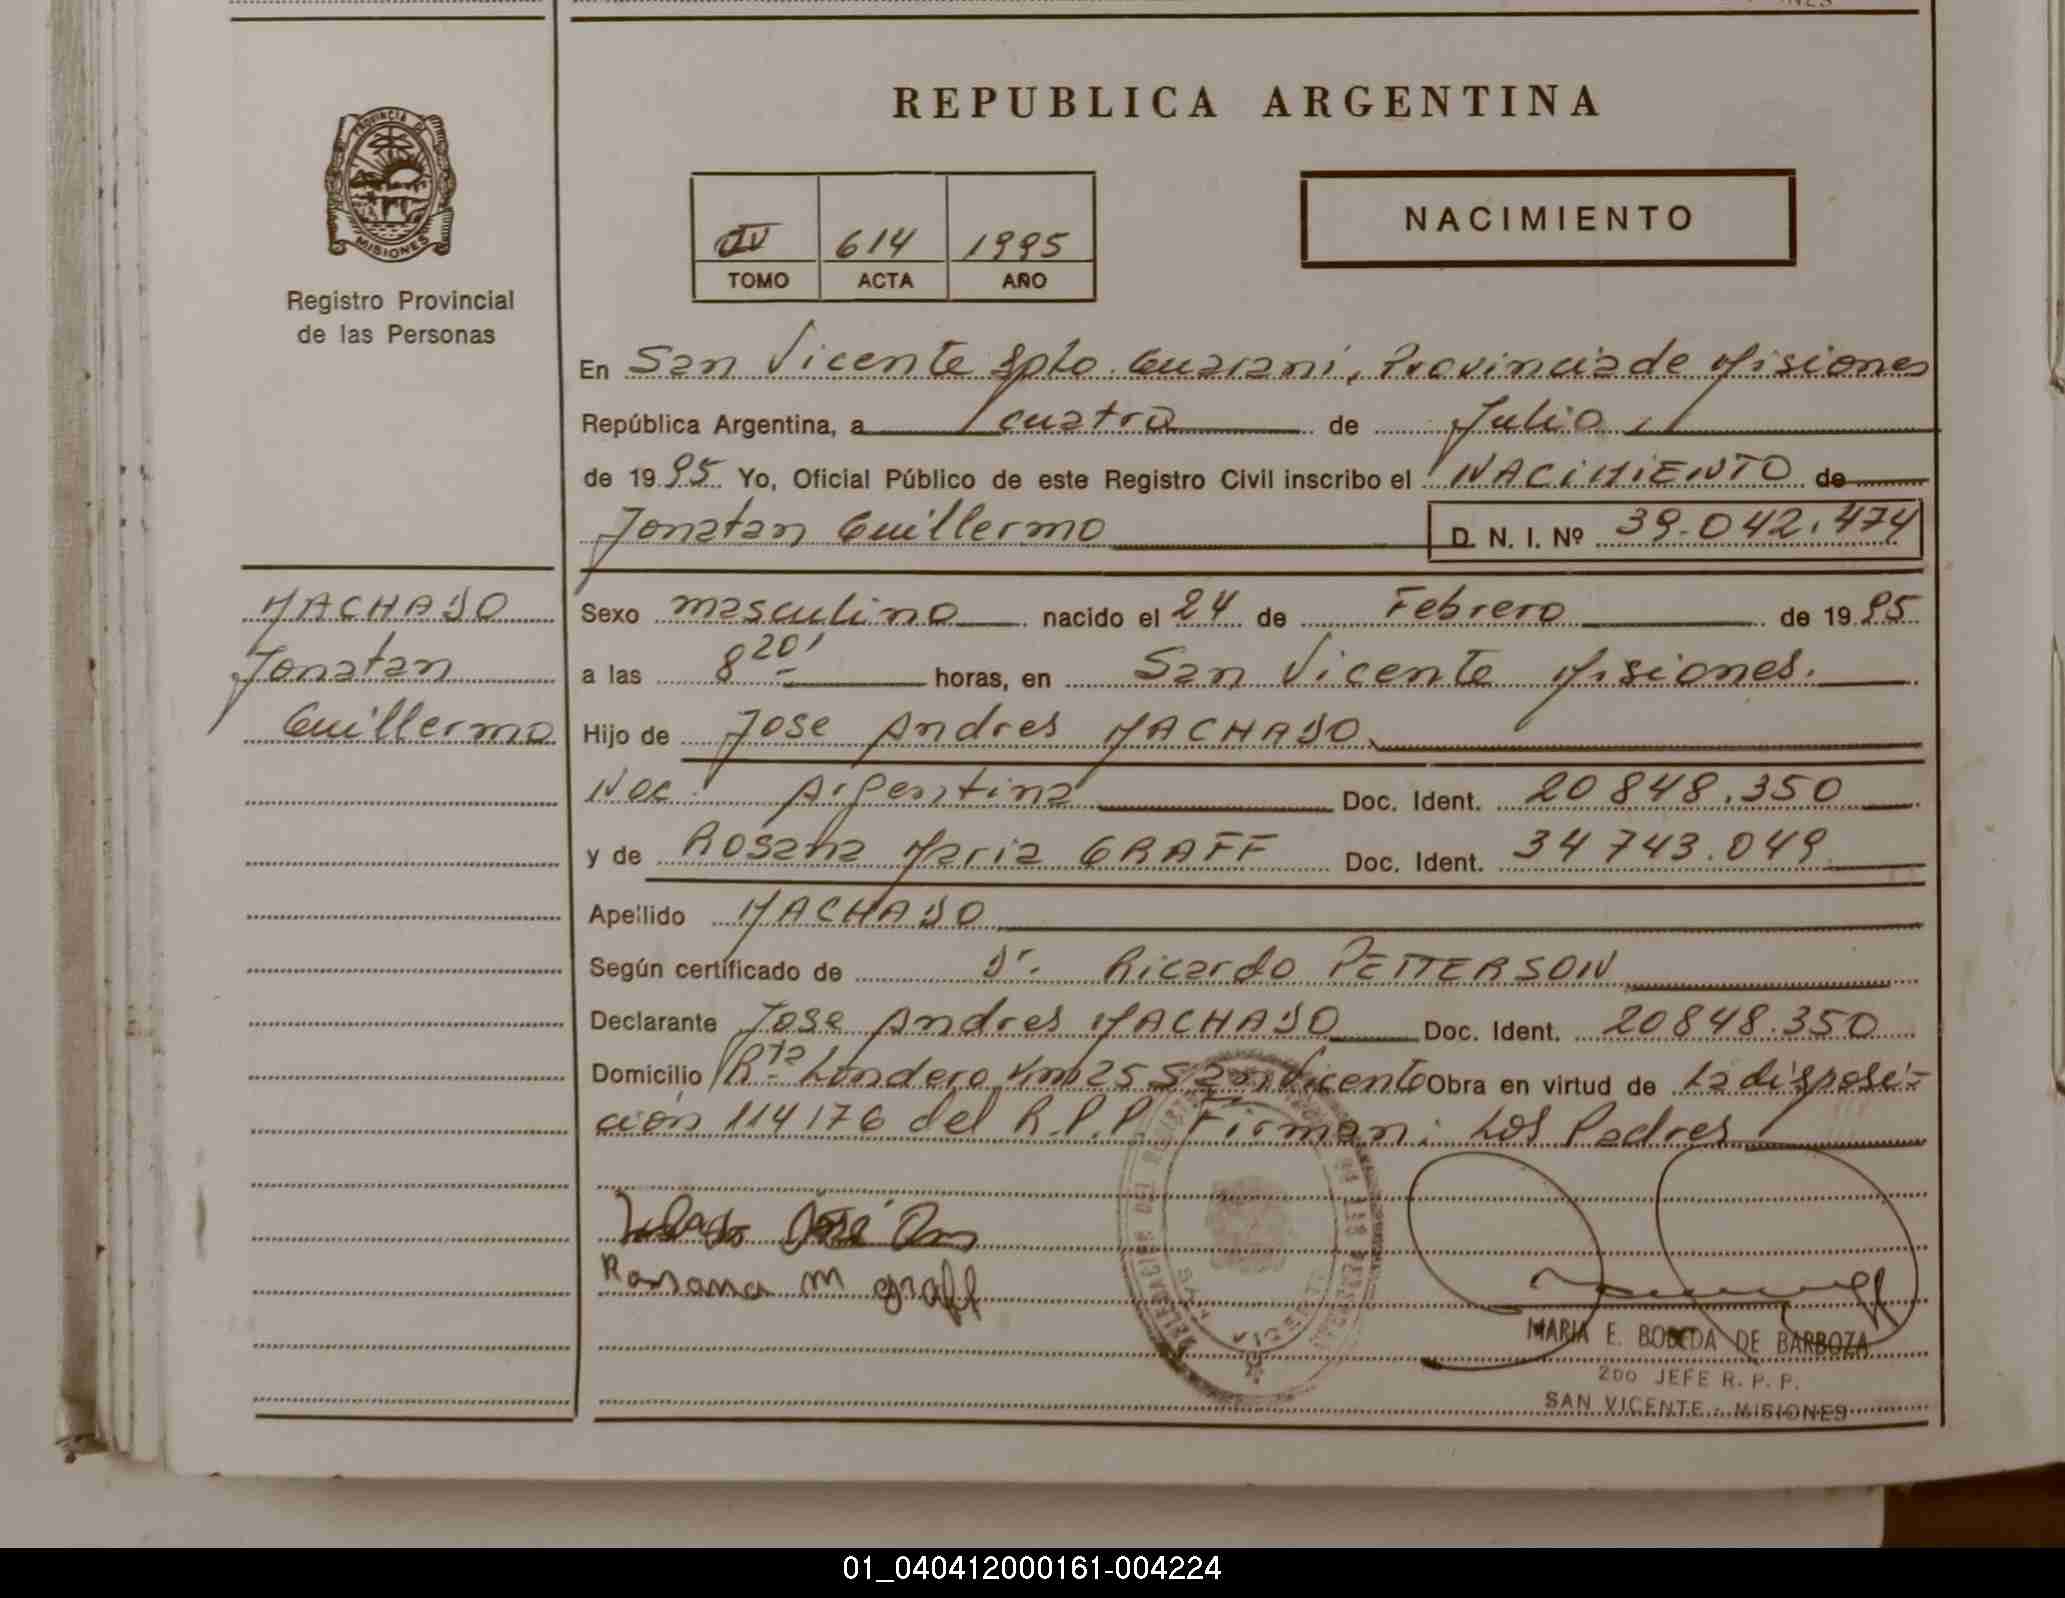 REPUBLICA ARGENTINA
PROVINCIA DE
MISIONES
Registro Provincial
de las Personas
IV 614 1995
TOMO ACTA AÑO
NACIMIENTO
En San Vicente Dpto. Guarani, Provincia de Misiones
República Argentina, a cuatro de Julio
de 1995 Yo, Oficial Público de este Registro Civil inscribo el NACIMIENTO de
Jonatan Guillermo D. N. I. Nº 39.042.474
MACHADO
Jonatan
Guillermo
Sexo masculino nacido el 24 de Febrero de 1995
a las 8 20' horas, en San Vicente Misiones.
Hijo de Jose Andres MACHADO
Nac. Argentina Doc. Ident. 20848.350
y de Rosana Maria GRAFF Doc. Ident. 34743.049
Apellido MACHADO
Según certificado de Dr. Ricardo PETTERSON
Declarante Jose Andres MACHADO Doc. Ident. 20848.350
Domicilio Rta Londero Km 255 San Vicente Obra en virtud de La disposi-
ción 114176 del R.P.P. Firman: Los Padres
José
Rossana m graff
SAN VICENTE
MARIA E. BOBEDA DE BARBOZA
2DO JEFE R. P. P.
SAN VICENTE - MISIONES
01_040412000161-004224